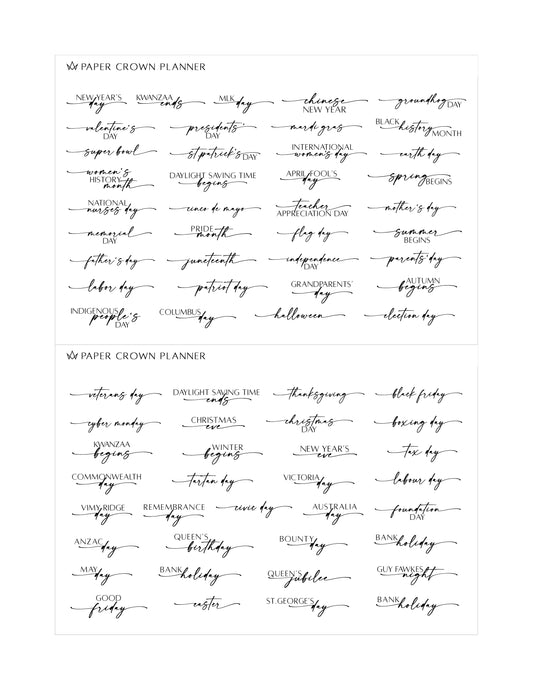 PAPER CROWN PLANNER
NEW YEAR'S day KWANZAA ends MLK day chinese NEW YEAR groundhog DAY
valentine's DAY presidents' DAY mardi gras BLACK history MONTH
super bowl st patrick's DAY INTERNATIONAL women's day earth day
women's HISTORY month DAYLIGHT SAVING TIME begins APRIL FOOL'S day spring BEGINS
NATIONAL nurses day cinco de mayo teacher APPRECIATION DAY mother's day
memorial DAY PRIDE month flag day summer BEGINS
father's day juneteenth independence DAY parents' day
labor day patriot day GRANDPARENTS' day AUTUMN begins
INDIGENOUS people's DAY COLUMBUS day halloween election day
PAPER CROWN PLANNER
veterans day DAYLIGHT SAVING TIME ends thanksgiving black friday
cyber monday CHRISTMAS eve christmas DAY boxing day
KWANZAA begins WINTER begins NEW YEAR'S eve tax day
COMMONWEALTH day tartan day VICTORIA day labour day
VIMY RIDGE day REMEMBRANCE day civic day AUSTRALIA day foundation DAY
ANZAC day QUEEN'S birthday BOUNTY day BANK holiday
MAY day BANK holiday QUEEN'S jubilee GUY FAWKES night
GOOD friday easter ST.GEORGE'S day BANK holiday